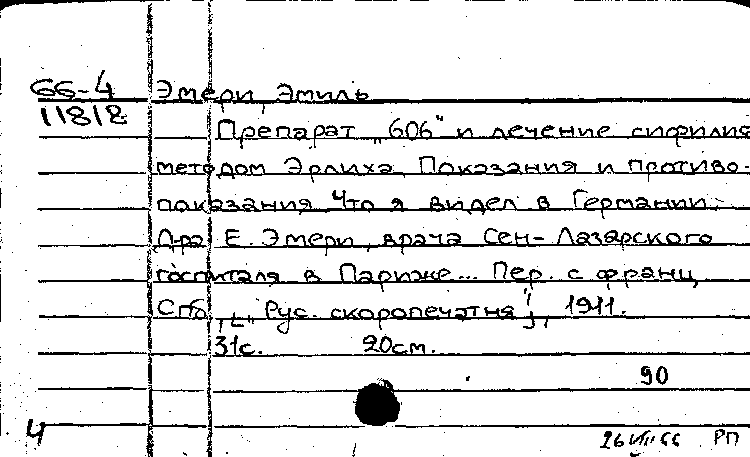 66-4 Эмери, Эмиль
11818
Препарат „606" и лечение сифилиса
методом Эрлиха. Показания и противо-
показания. Что я видел в Германии.
Д-ра Е. Эмери, врача Сен-Лазарского
госпиталя в Париже... Пер. с франц.
Спб., [„Рус. скоропечатня"], 1911.
31с. 20см.
90
4
РП